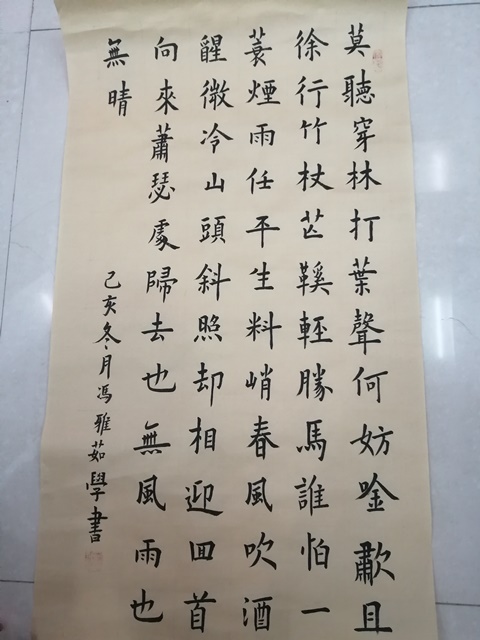 莫聽穿林打葉聲何妨唫歗且
徐行竹杖芒鞵輕勝馬誰怕一
蓑煙雨任平生料峭春風吹酒
醒微冷山頭斜照却相迎回首
向來蕭瑟處歸去也無風雨也
無晴
己亥冬月冯雅茹學書